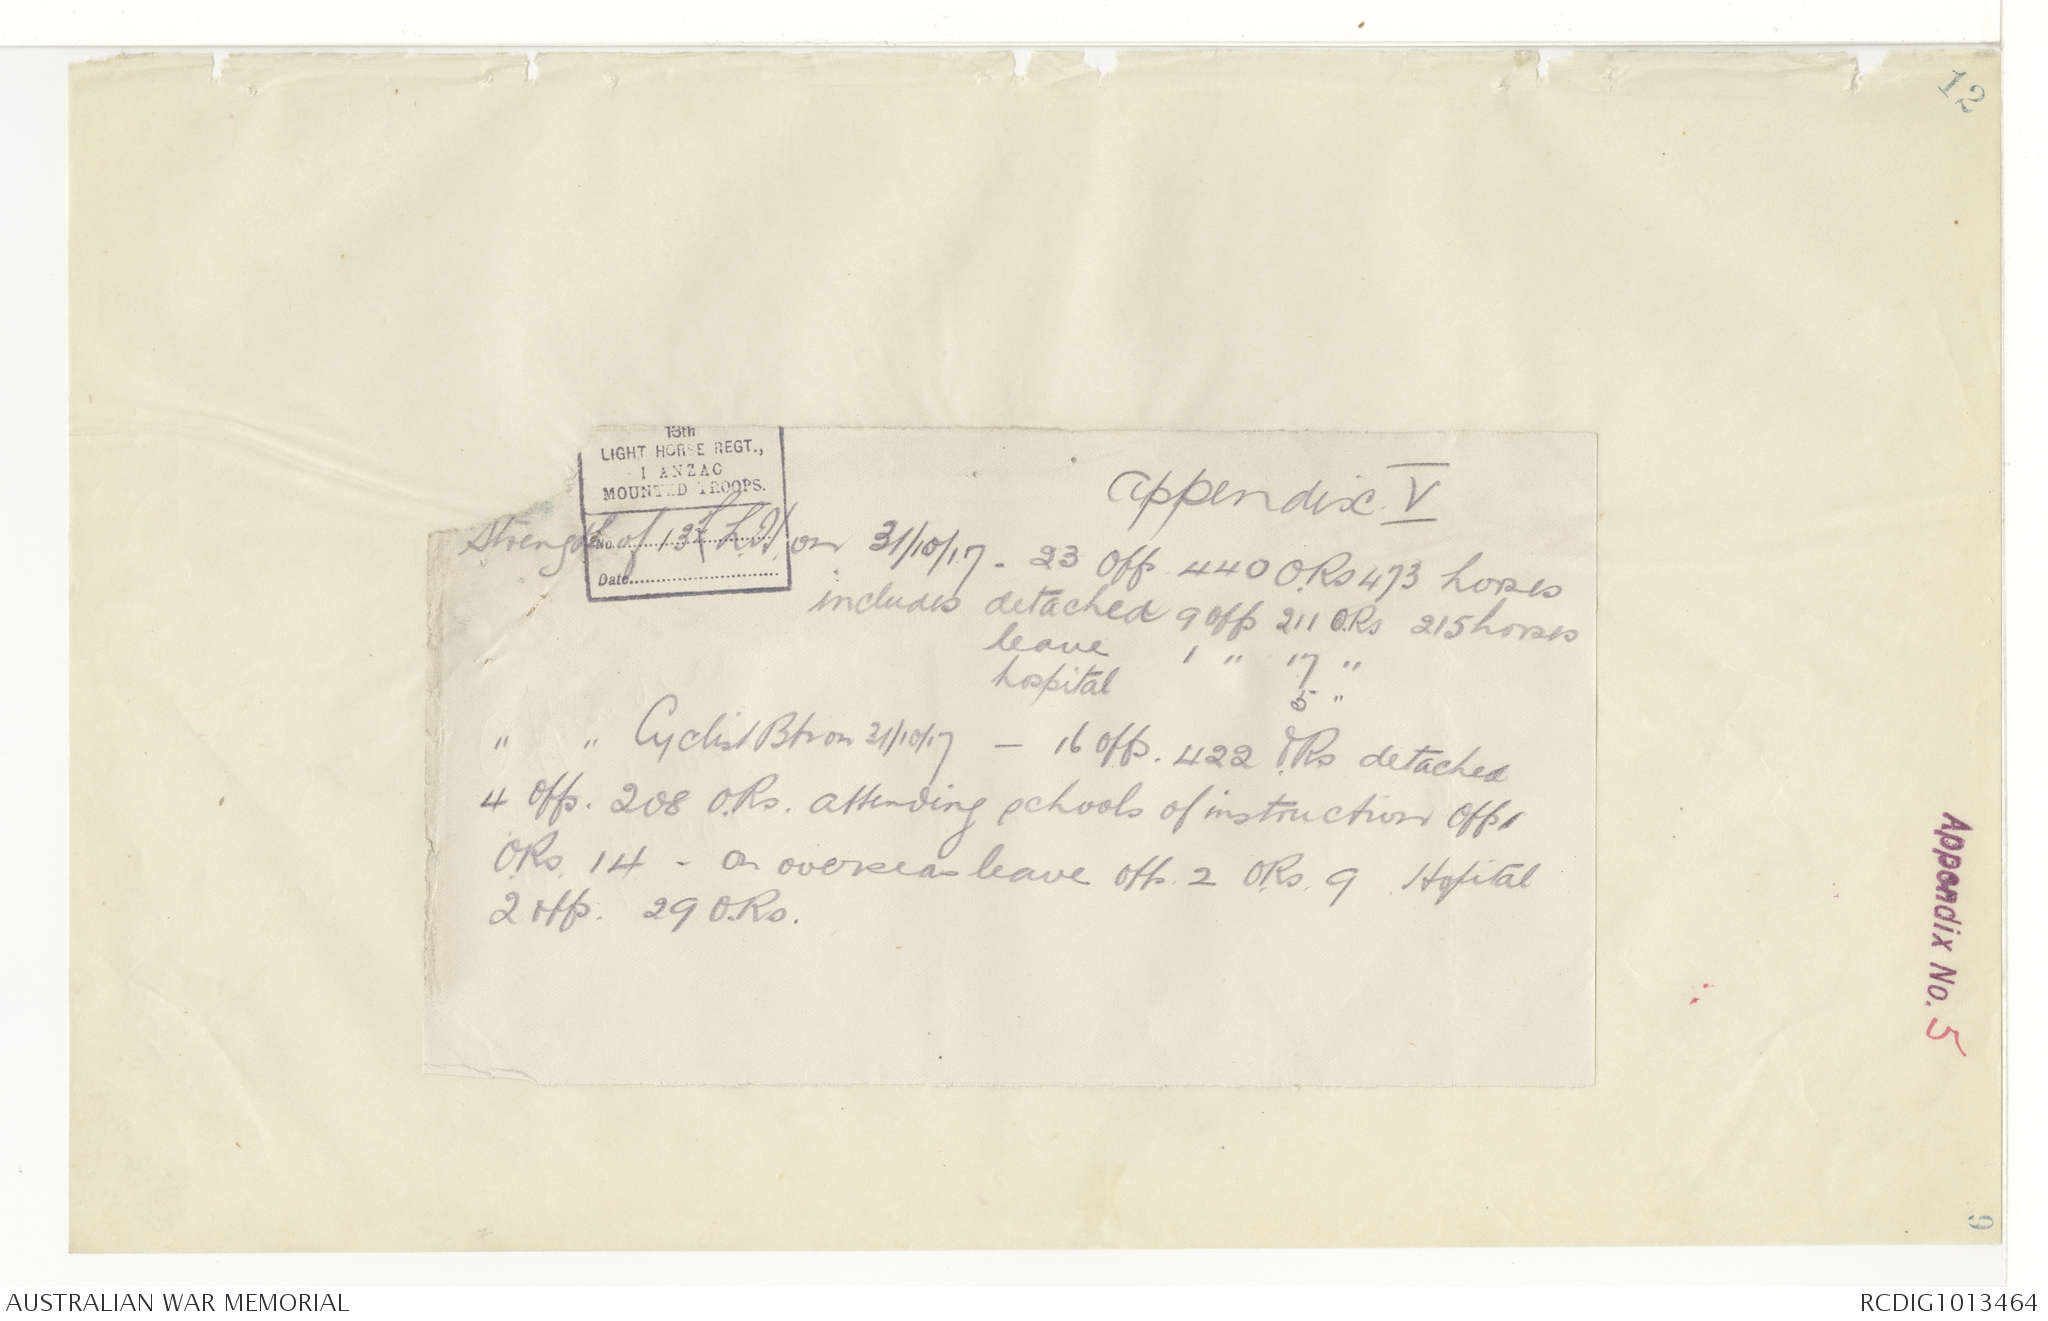 12
13th
LIGHT HORSE REGT.,
I ANZAC
MOUNTED TROOPS.
No.
Date
Appendix V
Strength of 13th L.H. on 31/10/17 - 23 Off 440 O.Rs 473 horses
includes detached 9 Off 211 O.Rs 215 horses
leave 1 " 17 "
hospital 5 "
" " Cyclist Btn on 31/10/17 — 16 Offs. 422 O.Rs detached
4 Offs. 208 O.Rs. attending schools of instruction Offs 1
O.Rs. 14 - on overseas leave Offs. 2 O.Rs. 9 Hospital
2 Offs. 29 O.Rs.
Appendix No. 5
AUSTRALIAN WAR MEMORIAL
RCDIG1013464